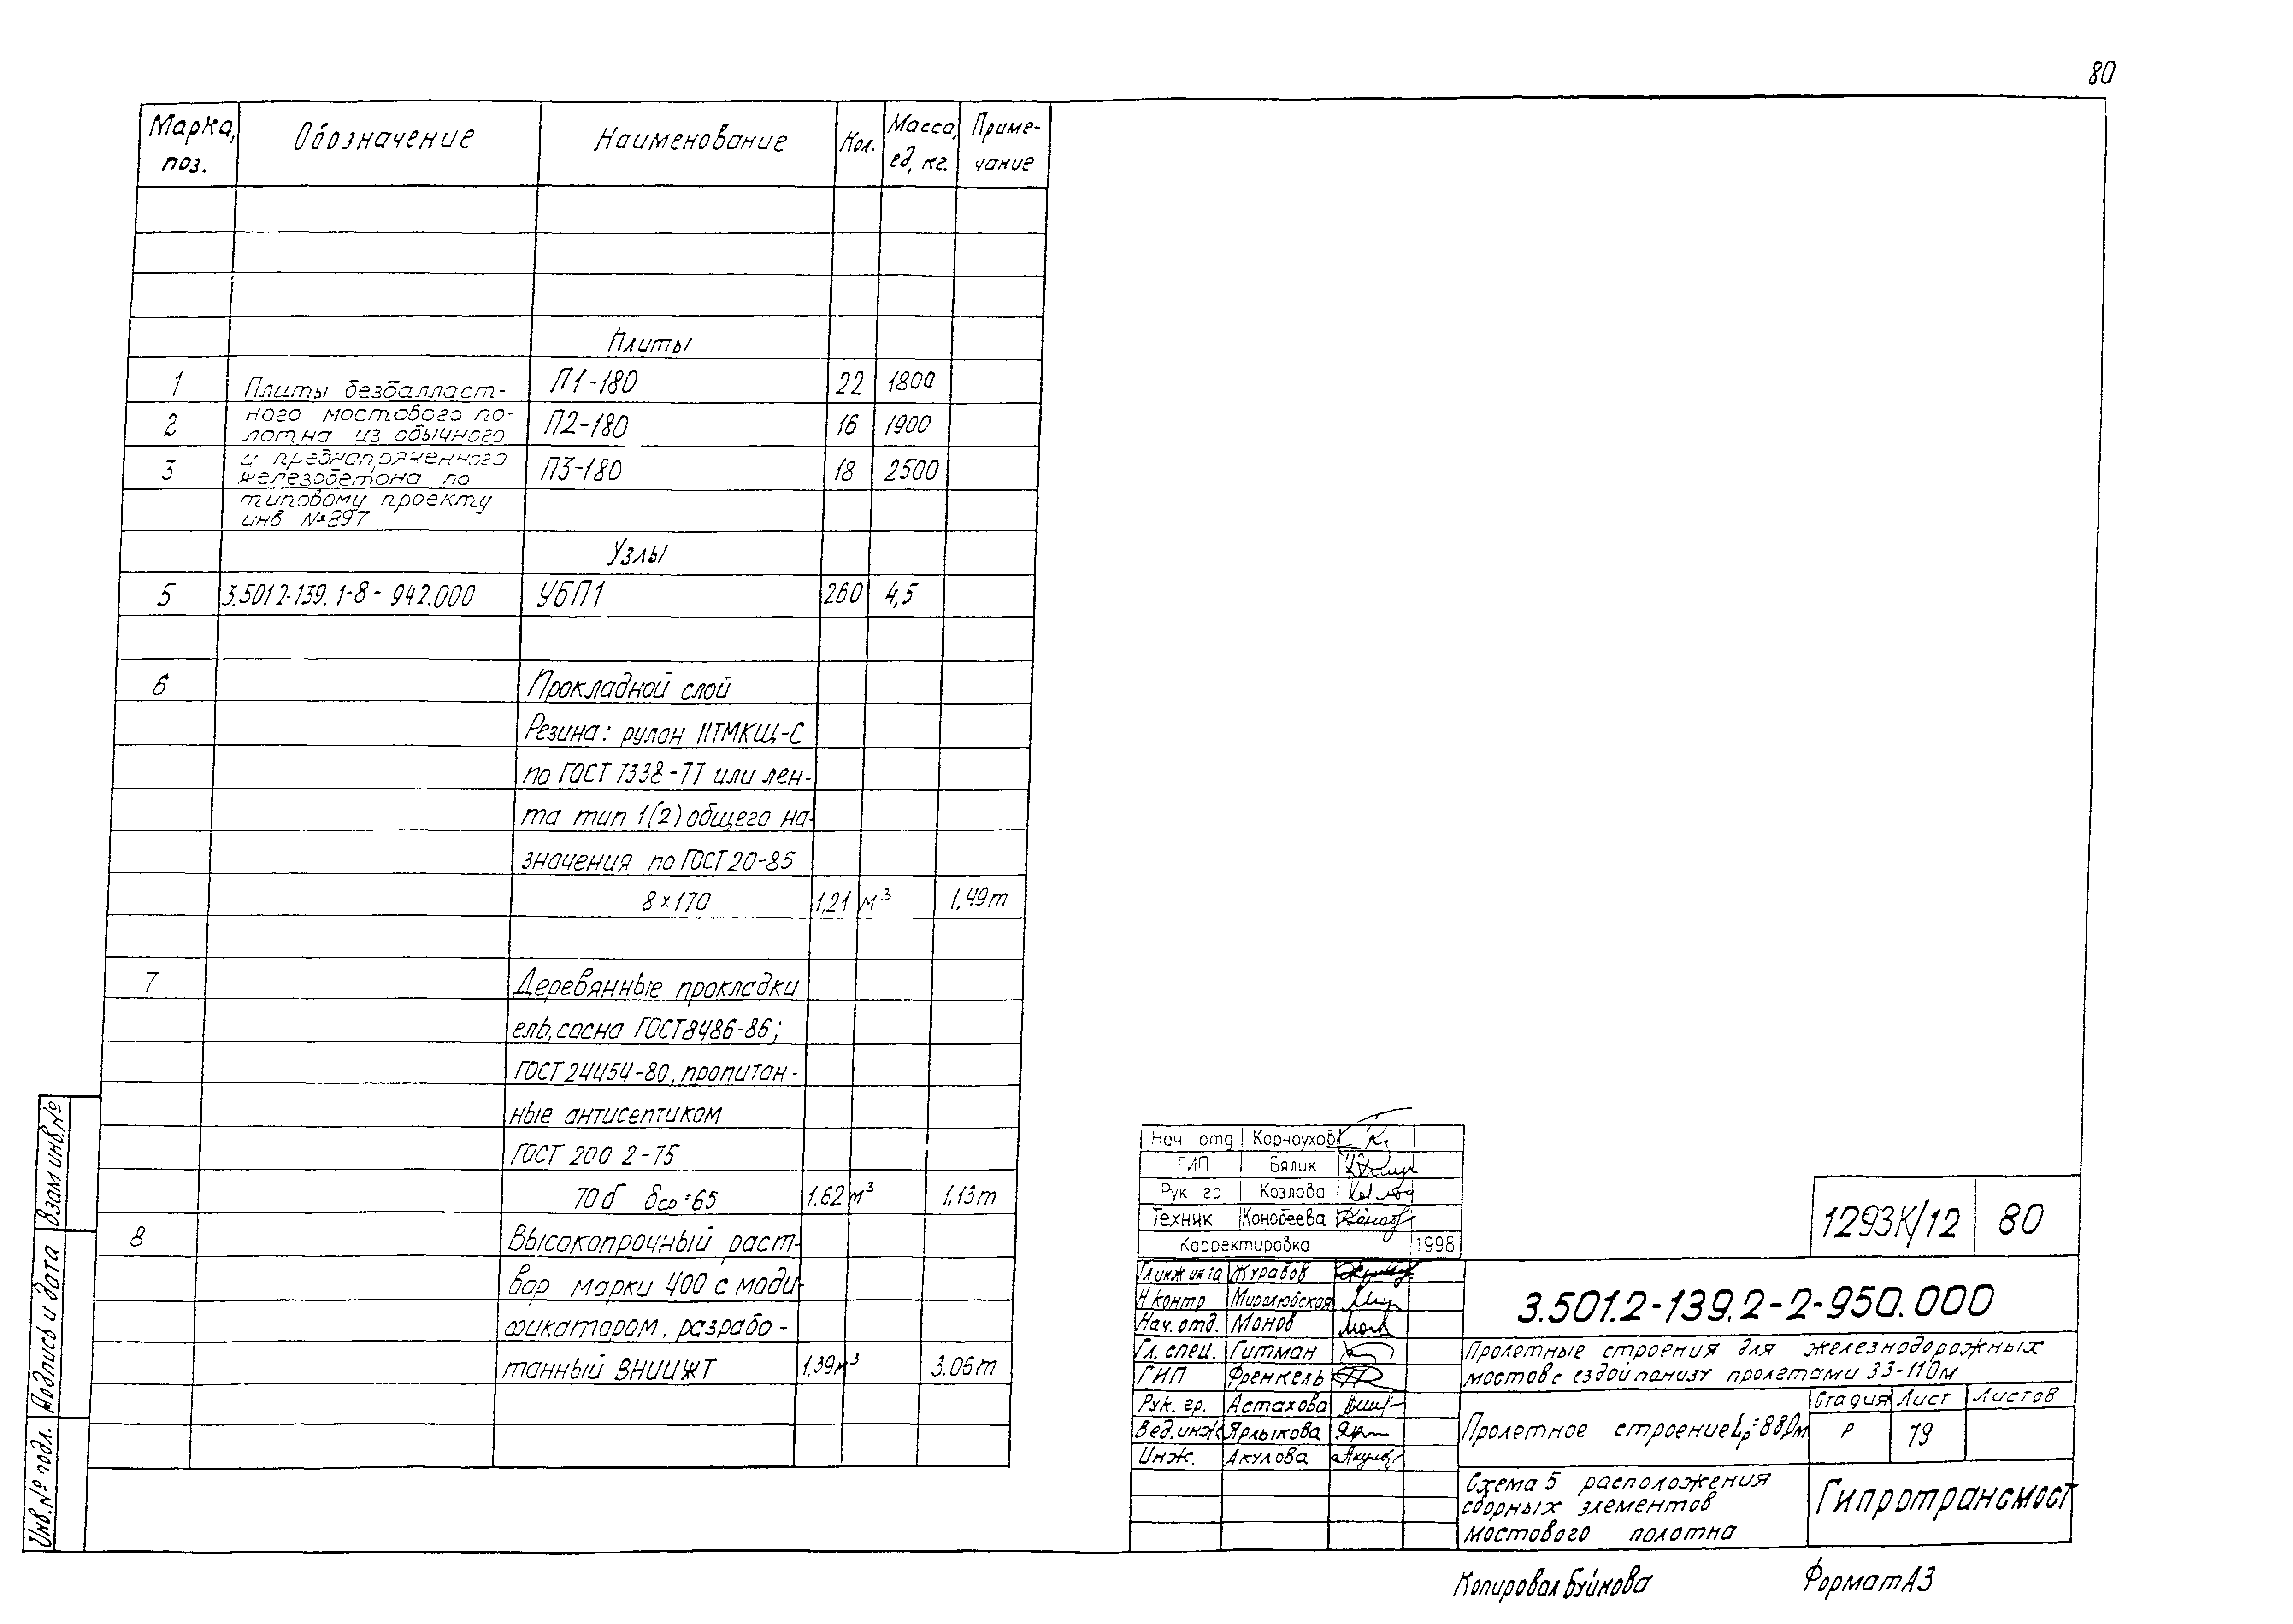 80
Марка, поз. Обозначение Наименование Кол. Масса, ед, кг. Приме-чание
Плиты
1 П1-180 22 1800
2 П2-180 16 1900
3 П3-180 18 2500
Плиты безбалласт-
ного мостового по-
лотна из обычного
и преднапряженного
железобетона по
типовому проекту
инв №897
Узлы
5 3.501 2-139. 1-8 - 942.000 УБП1 260 4,5
6 Прокладной слой
Резина: рулон IIТМКЩ-С
по ГОСТ 7338-77 или лен-
та тип 1(2) общего на-
значения по ГОСТ 20-85
8×170 1,21 м³ 1.49т
7 Деревянные прокладки
ель, сосна ГОСТ 8486-86;
ГОСТ 24454-80, пропитан-
ные антисептиком
ГОСТ 200 2-75
70б δср=65 1.62 м³ 1,13т
8 Высокопрочный раст-
вор марки 400 с моди-
фикатором, разрабо-
танный ВНИИЖТ 1,39м³ 3.06т
Взам инв.№
Подпись и дата
Инв.№ подл.
Нач отд Корноухов
ГИП Бялик
Рук гр Козлова
Техник Конобеева
Корректировка 1998
Гл инж ин та Журавов
Н контр Миролюбская
Нач. отд. Монов
Гл. спец. Гитман
ГИП Френкель
Рук. гр. Астахова
Вед.инж Ярлыкова
Инж. Акулова
1293К/12 80
3.501.2-139.2-2-950.000
Пролетные строения для железнодорожных
мостов с ездой понизу пролетами 33-110м
Пролетное строение Lр=88,0м
Стадия Лист Листов
Р 79
Схема 5 расположения
сборных элементов
мостового полотна
Гипротрансмост
Копировал Буйнова Формат А3